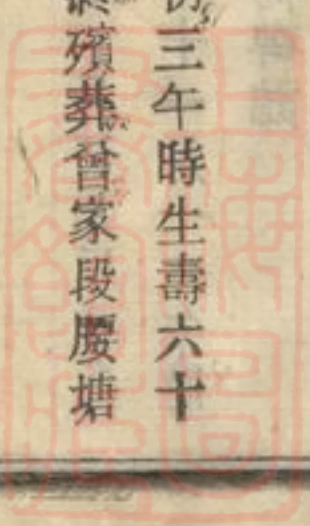 初三午時生壽六十
殯葬曾家段腰塘